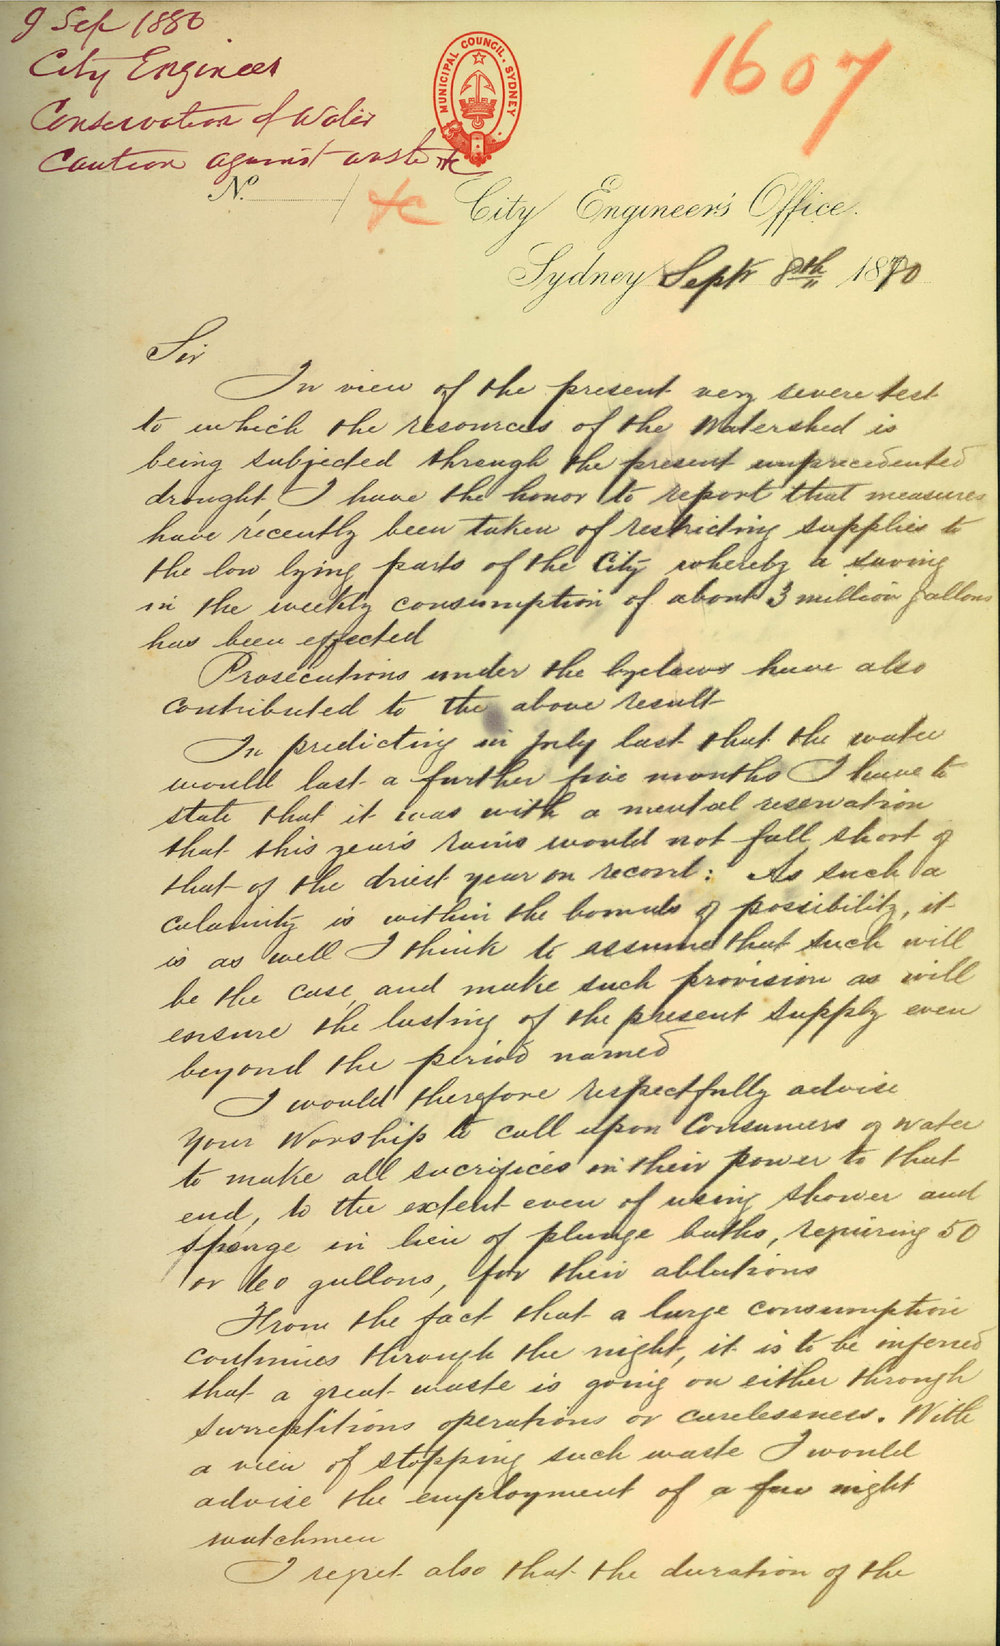 9 Sep 1880
City Engineer
Conservation of Water
Caution against waste &c
MUNICIPAL COUNCIL. SYDNEY
1607
No.
&c
City Engineer's Office.
Sydney Septr 8th 1880
Sir
In view of the present very severe test
to which the resources of the Watershed is
being subjected through the present unprecedented
drought, I have the honor to report that measures
have recently been taken of restricting supplies to
the low lying parts of the City whereby a saving
in the weekly consumption of about 3 million gallons
has been effected
Prosecutions under the byelaws have also
contributed to the above result
In predicting in July last that the water
would last a further five months I have to
state that it was with a mental reservation
that this year's rains would not fall short of
that of the driest year on record: As such a
calamity is within the bounds of possibility, it
is as well I think to assume that such will
be the case, and make such provision as will
ensure the lasting of the present supply even
beyond the period named
I would therefore respectfully advise
Your Worship to call upon Consumers of water
to make all sacrifices in their power to that
end, to the extent even of using shower and
sponge in lieu of plunge baths, requiring 50
or 60 gallons, for their ablutions
From the fact that a large consumption
continues through the night, it is to be inferred
that a great waste is going on either through
surreptitious operations or carelessness. With
a view of stopping such waste I would
advise the employment of a few night
watchmen
I regret also that the duration of the